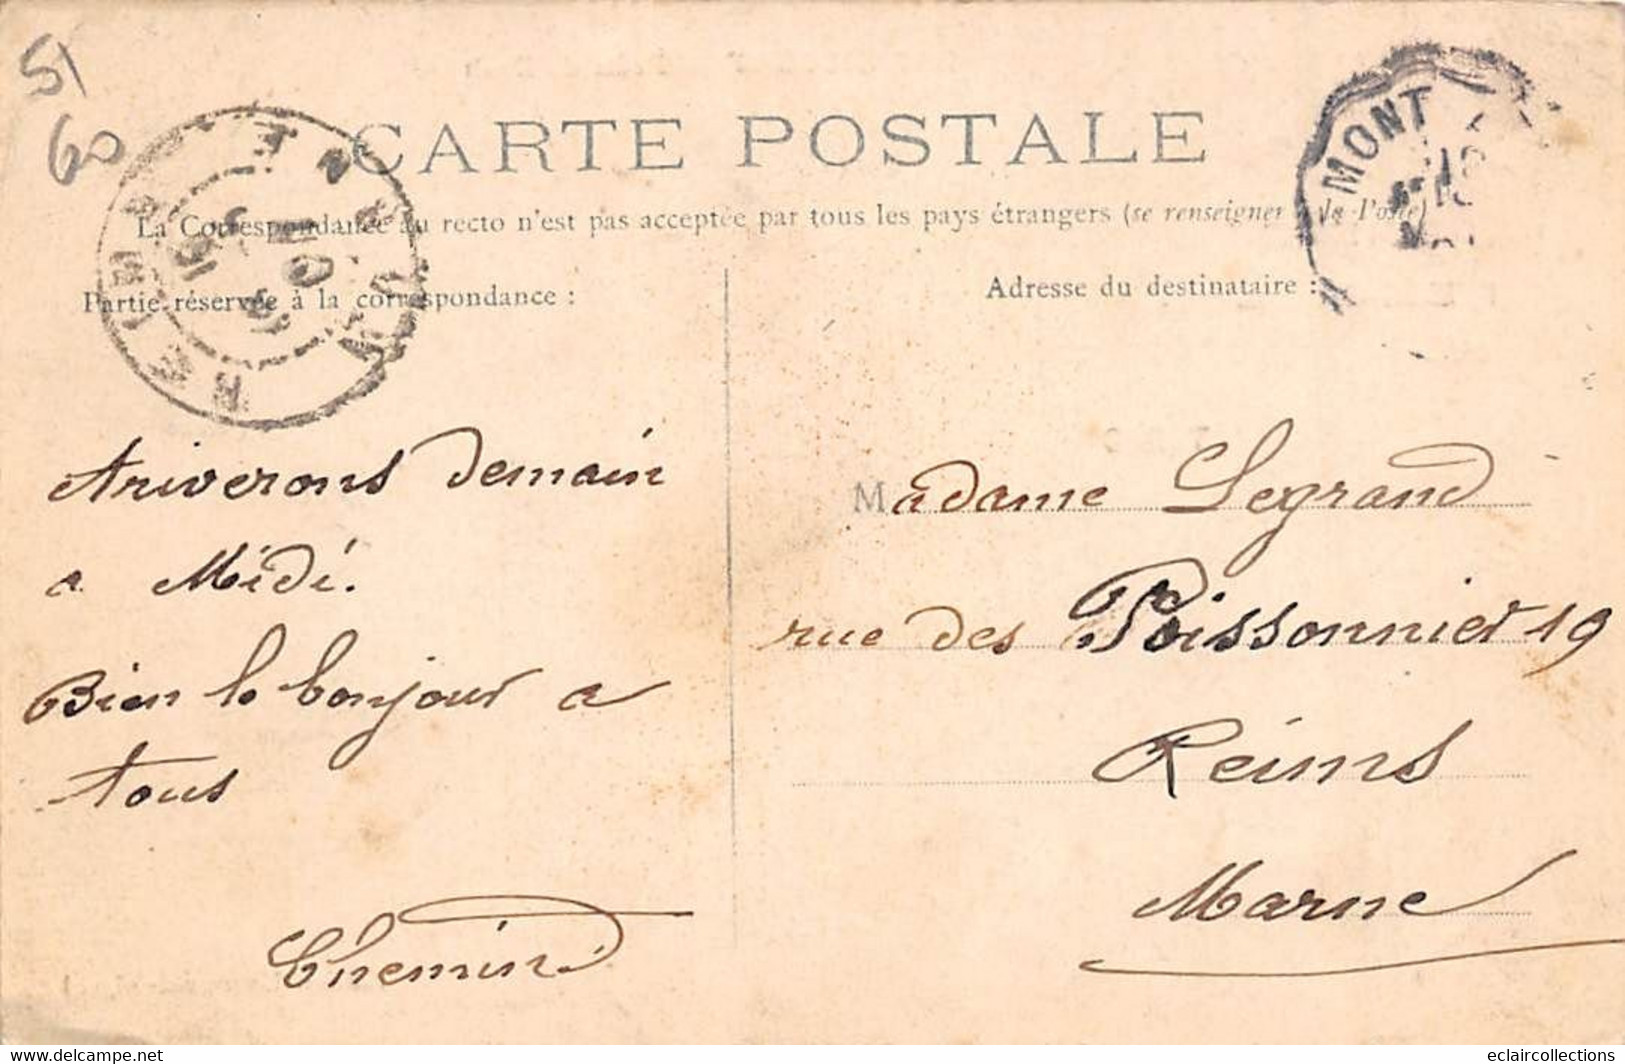 51
60
CARTE POSTALE
La Correspondance au recto n'est pas acceptée par tous les pays étrangers (se renseigner à la Poste)
Partie réservée à la correspondance :
Adresse du destinataire :
MONT
REIMS
MARNE
Ariverons demain
a Midi.
Bien le bonjour a
tous
Chemin
Madame Legrand
rue des Poissonnier 19
Reims
Marne
www.delcampe.net
eclaircollections